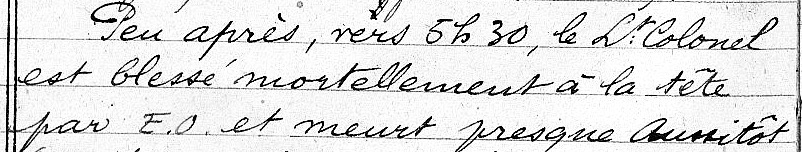 Peu après, vers 5h30, le Lt Colonel
est blessé mortellement à la tête
par E.O. et meurt presque aussitôt